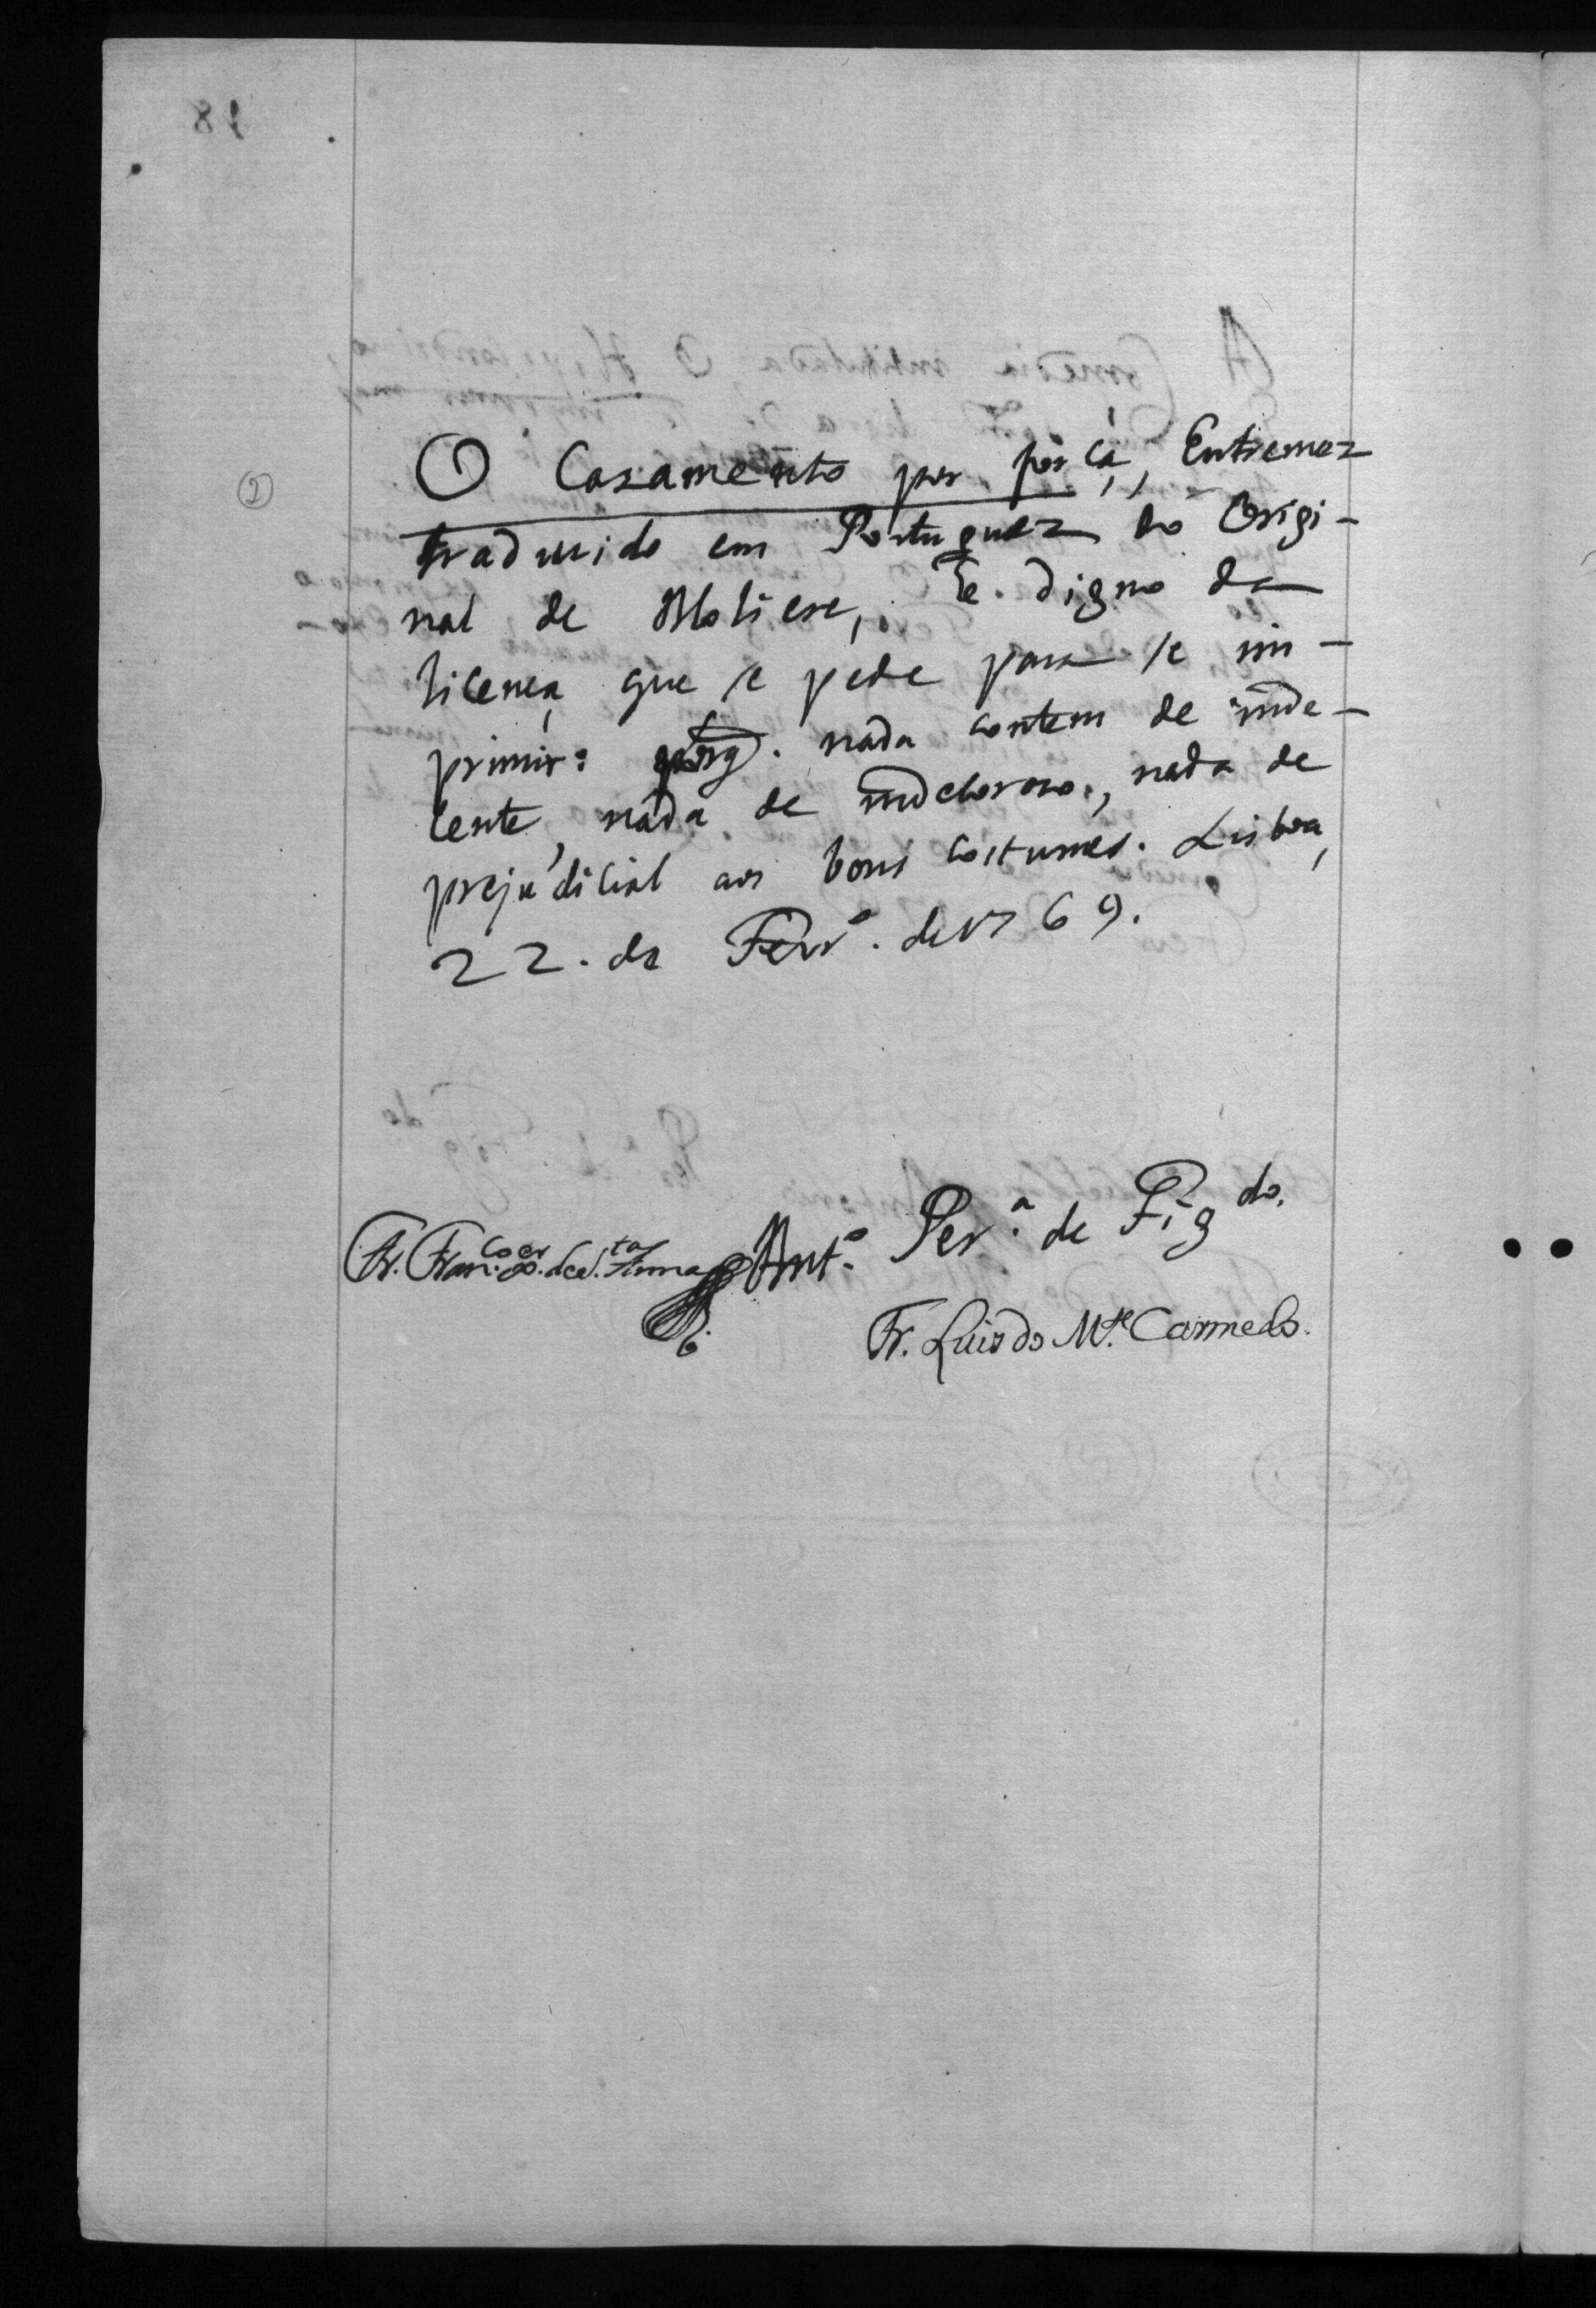 ②
O Casamento por força, Entremez
traduzido em Portuguez do Origi-
nal de Moliere, he digno da
licença que se pede para se im-
primir: porq. nada contem de inde-
cente, nada de indecoroso, nada de
prejudicial aos bons costumes. Lisboa,
22. de Fevrº. de 1769.
Antº. Perª. de Figdo.
Fr. Francco. de Sta. Anna
Fr. Luis do Mte. Carmelo.